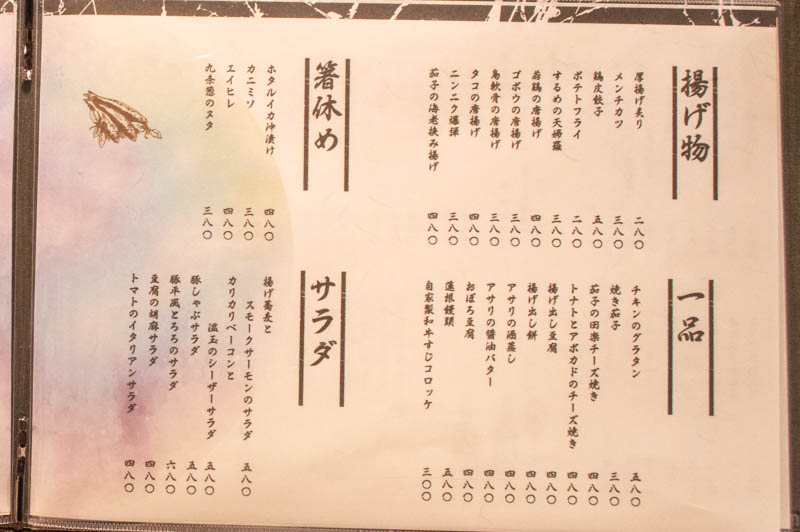 揚げ物
厚揚げ炙り 二八〇
メンチカツ 三八〇
鶏皮餃子 五八〇
ポテトフライ 二八〇
するめの天婦羅 三八〇
若鶏の唐揚げ 四八〇
ゴボウの唐揚げ 三八〇
鳥軟骨の唐揚げ 三八〇
タコの唐揚げ 四八〇
ニンニク爆弾 三八〇
茄子の海老挟み揚げ 四八〇
箸休め
ホタルイカ沖漬け 四八〇
カニミソ 三八〇
エイヒレ 四八〇
九条葱のヌタ 三八〇
一品
チキンのグラタン 五八〇
焼き茄子 三八〇
茄子の田楽チーズ焼き 四八〇
トナトとアボカドのチーズ焼き 四八〇
揚げ出し豆腐 四八〇
揚げ出し餅 四八〇
アサリの酒蒸し 四八〇
アサリの醤油バター 四八〇
おぼろ豆腐 四八〇
蓮根饅頭 五八〇
自家製和牛すじコロッケ 三〇〇
サラダ
揚げ蕎麦と
スモークサーモンのサラダ 五八〇
カリカリベーコンと
温玉のシーザーサラダ 五八〇
豚しゃぶサラダ 五八〇
豚平風とろろのサラダ 六八〇
豆腐の胡麻サラダ 四八〇
トマトのイタリアンサラダ 四八〇